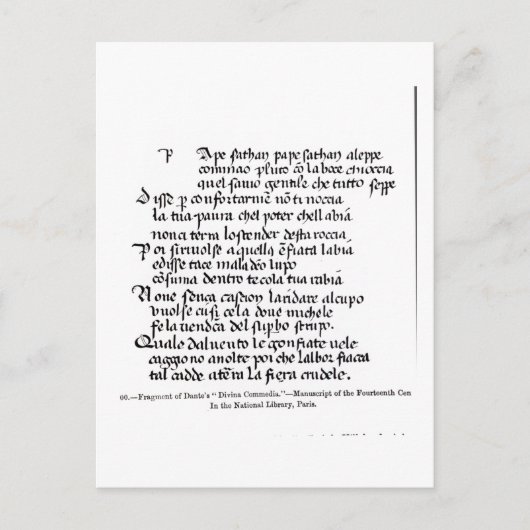 P Ape sathan pape sathan aleppe
cominciao pluto cō la boce chioccia
quel savio gentile che tutto seppe
Disse p confortarmē nō ti noccia
la tua paura chel poter chelli abiā
non ci terra lo scender desta roccia
Poi si rivolse a quella ēfiata labiā
e disse tace maladeō lupo
cōsuma dentro te co la tua rabiā
None senca casion landare al cupo
vuolse cusi cela dove michele
fe la vendca del supbo strupo.
Quale dal vento le gonfiate vele
caggiono avolte poi che lalbor fiacca
tal cadde a tēra la fiera crudele.
60.—Fragment of Dante's "Divina Commedia."—Manuscript of the Fourteenth Cen
In the National Library, Paris.